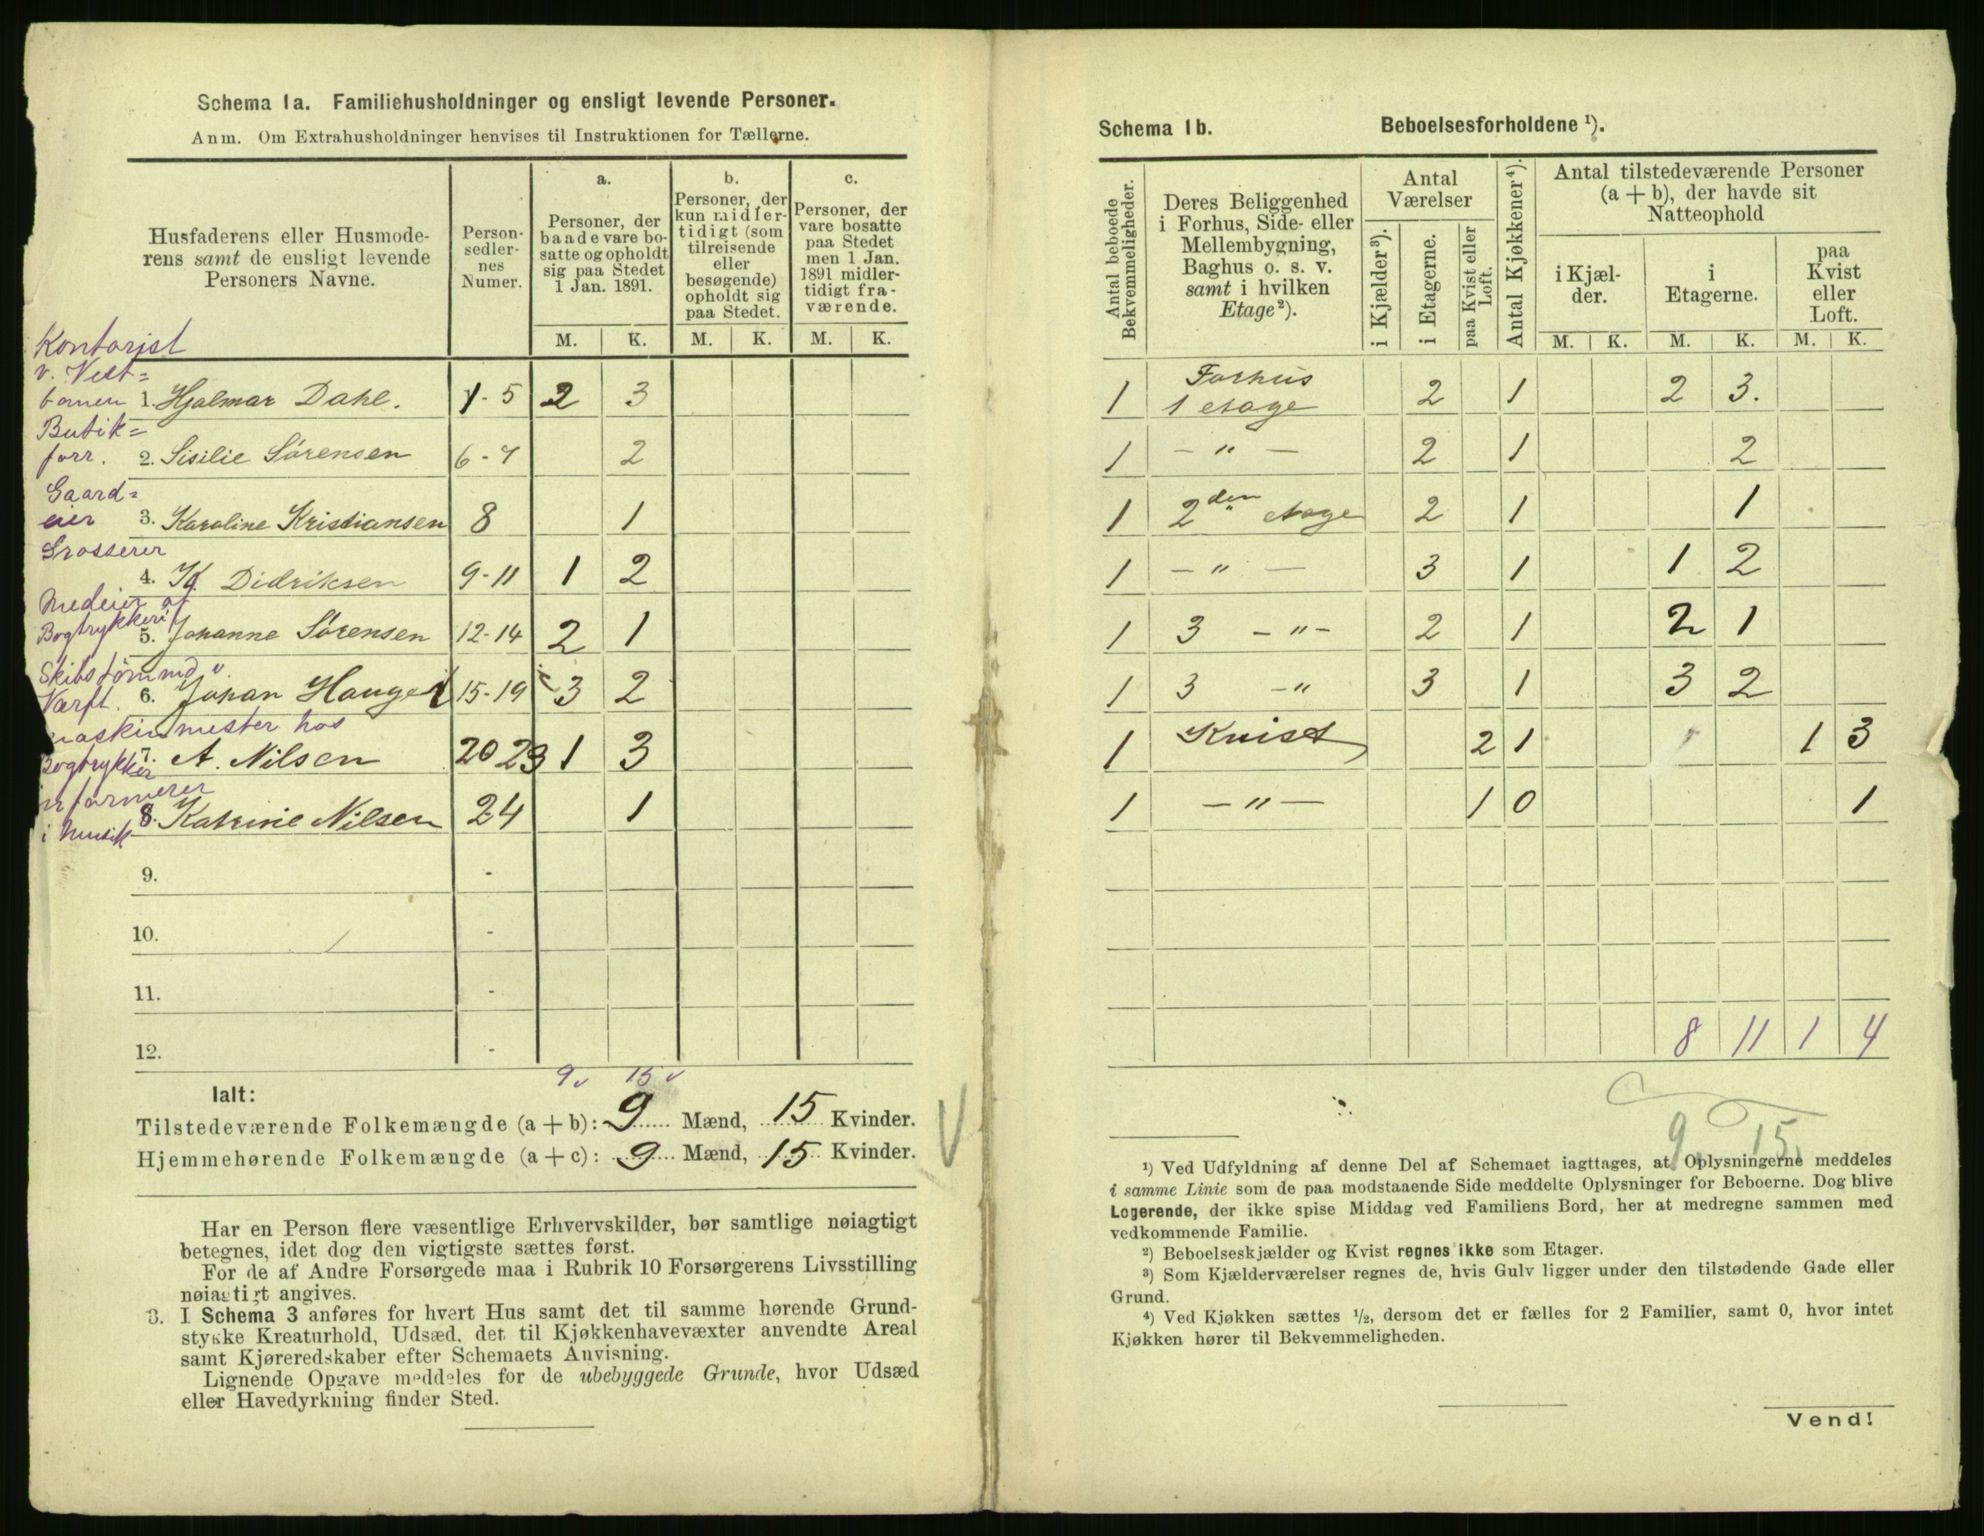 Schema 1a. Familiehusholdninger og ensligt levende Personer.
Anm. Om Extrahusholdninger henvises til Instruktionen for Tællerne.
Husfaderens eller Husmode-
rens samt de ensligt levende
Personers Navne.
Person-
sedler-
nes
Numer.
a.
Personer, der
baade vare bo-
satte og opholdt
sig paa Stedet
1 Jan. 1891.
b.
Personer, der
kun midler-
tidigt (som
tilreisende
eller
besøgende)
opholdt sig
paa Stedet.
c.
Personer, der
vare bosatte
paa Stedet
men 1 Jan.
1891 midler-
tidigt fra-
værende.
M. K. M. K. M. K.
Kontorist
v. Vest=
banen 1. Hjalmar Dahl. 1-5 2 3
Butik=
forr. 2. Sisilie Sørensen 6-7 2
Gaard=
eier 3. Karoline Kristiansen 8 1
Grosserer
4. Didriksen 9-11 1 2
Medeier af
Bogtrykkeri 5. Johanne Sørensen 12-14 2 1
Skibstømmd v.
Værft. 6. Johan Hauger 15-19 3 2
maskinmester hos
Bogtrykker 7. A. Nilsen 20 23 1 3
informerer
i Musik 8. Katrine Nilsen 24 1
9. -
10. -
11. -
12. -
9 15
Ialt:
Tilstedeværende Folkemængde (a + b): 9 Mænd, 15 Kvinder.
Hjemmehørende Folkemængde (a + c): 9 Mænd, 15 Kvinder.
Har en Person flere væsentlige Erhvervskilder, bør samtlige nøiagtigt
betegnes, idet dog den vigtigste sættes først.
For de af Andre Forsørgede maa i Rubrik 10 Forsørgerens Livsstilling
nøiagtigt angives.
3. I Schema 3 anføres for hvert Hus samt det til samme hørende Grund-
stykke Kreaturhold, Udsæd, det til Kjøkkenhavevæxter anvendte Areal
samt Kjøreredskaber efter Schemaets Anvisning.
Lignende Opgave meddeles for de ubebyggede Grunde, hvor Udsæd
eller Havedyrkning finder Sted.
Schema 1b. Beboelsesforholdene ¹).
Antal beboede
Bekvemmeligheder.
Deres Beliggenhed
i Forhus, Side- eller
Mellembygning,
Baghus o. s. v.
samt i hvilken
Etage²).
Antal
Værelser
i Kjælder³).
i Etagerne.
paa Kvist eller
Loft.
Antal Kjøkkener⁴).
Antal tilstedeværende Personer
(a + b), der havde sit
Natteophold
i Kjæl-
der.
i
Etagerne.
paa
Kvist
eller
Loft.
M. K. M. K. M. K.
1 Forhus
1 etage 2 1 2 3.
1 — " — 2 1 2
1 2den etage 2 1 1
1 — " — 3 1 1 2
1 3 — " — 2 1 2 1
1 3 — " 3 1 3 2
1 Kvist 2 1 1 3
1 — " — 1 0 1
8 11 1 4
9 15
¹) Ved Udfyldning af denne Del af Schemaet iagttages, at Oplysningerne meddeles
i samme Linie som de paa modstaaende Side meddelte Oplysninger for Beboerne. Dog blive
Logerende, der ikke spise Middag ved Familiens Bord, her at medregne sammen med
vedkommende Familie.
²) Beboelseskjælder og Kvist regnes ikke som Etager.
³) Som Kjælderværelser regnes de, hvis Gulv ligger under den tilstødende Gade eller
Grund.
⁴) Ved Kjøkken sættes ½, dersom det er fælles for 2 Familier, samt 0, hvor intet
Kjøkken hører til Bekvemmeligheden.
Vend!